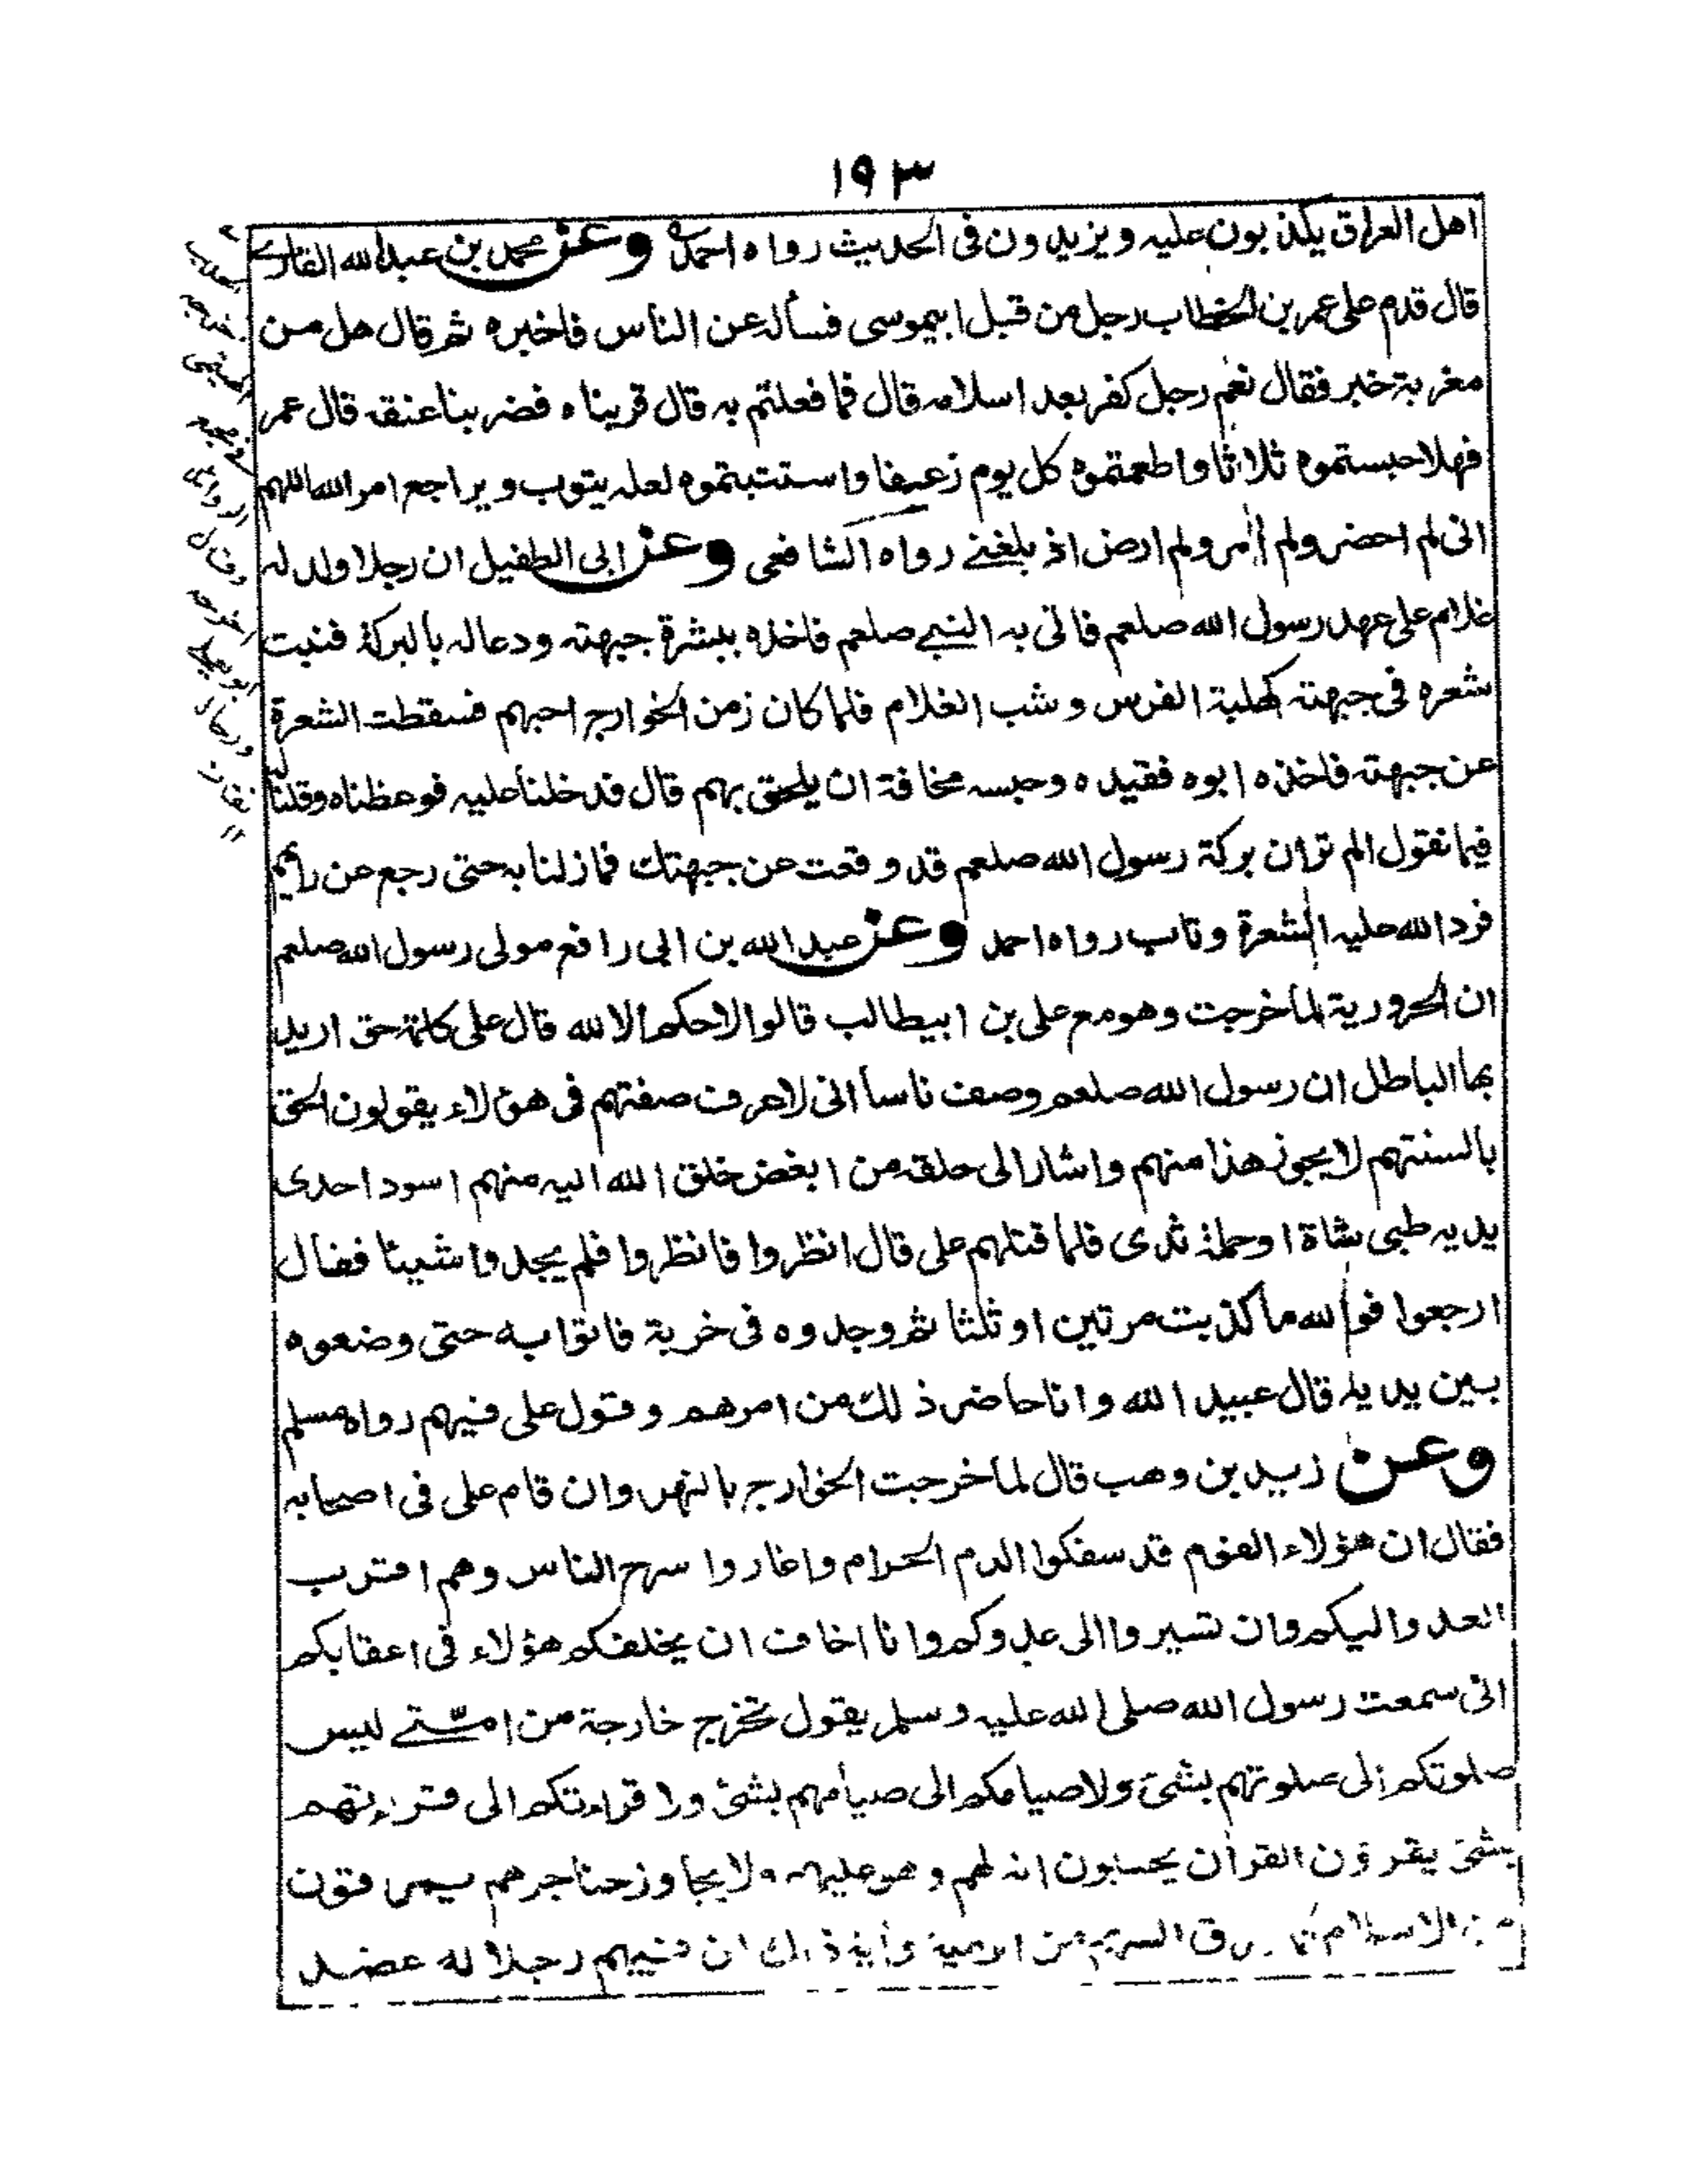 ١٩٣
اهل العراق يكذبون عليه ويزيدون فى الحديث رواه احمد وعن محمد بن عبدالله القارى
قال قدم على عمر بن الخطاب رجل من قبل ابيموسى فسأله عن الناس فاخبره ثم قال هل من
مغربة خبر فقال نعم رجل كفر بعد اسلامه قال فما فعلتم به قال قربناه فضربنا عنقه قال عمر
فهلا حبستموه ثلاثا واطعمتموه كل يوم رغيفا واستتبتموه لعله يتوب ويراجع امر الله اللهم
انى لم احضر ولم آمر ولم ارض اذ بلغنى رواه الشافعى وعن ابى الطفيل ان رجلا ولد له
غلام على عهد رسول الله صلعم فاتى به النبى صلعم فاخذه ببشرة جبهته ودعا له بالبركة فنبت
شعره فى جبهته كهلبة الفرس وشب الغلام فلما كان زمن الخوارج احبهم فسقطت الشعرة
عن جبهته فاخذه ابوه فقيده وحبسه مخافة ان يلحق بهم قال فدخلنا عليه فوعظناه وقلنا له
فيما نقول الم تر ان بركة رسول الله صلعم قد وقعت عن جبهتك فما زلنا به حتى رجع عن رايهم
فرد الله عليه الشعرة وتاب رواه احمد وعن عبد الله بن ابى رافع مولى رسول الله صلعم
ان الحرورية لما خرجت وهو مع على بن ابيطالب قالوا لا حكم الا لله قال على كلمة حق اريد
بها الباطل ان رسول الله صلعم وصف ناسا انى لاعرف صفتهم فى هؤلاء يقولون الحق
بالسنتهم لا يجوز هذا منهم واشار الى حلقه من ابغض خلق الله اليه منهم اسود احدى
يديه طبى شاة او حلمة ثدى فلما قتلهم على قال انظروا فانظروا فلم يجدوا شيئا فقال
ارجعوا فوالله ما كذبت مرتين او ثلثا ثم وجدوه فى خربة فاتوا به حتى وضعوه
بين يديه قال عبيد الله وانا حاضر ذلك من امرهم وقول على فيهم رواه مسلم
وعن زيد بن وهب قال لما خرجت الخوارج بالنهروان قام على فى اصحابه
فقال ان هؤلاء القوم قد سفكوا الدم الحرام واغاروا سرح الناس وهم اقرب
العدو اليكم وان تسيروا الى عدوكم وانا اخاف ان يخلفكم هؤلاء فى اعقابكم
انى سمعت رسول الله صلى الله عليه وسلم يقول تخرج خارجة من امتى ليس
صلوتكم الى صلوتهم بشئ ولا صيامكم الى صيامهم بشئ ولا قراءتكم الى قراءتهم
بشئ يقرؤن القرآن يحسبون انه لهم وهو عليهم ولا يجاوز حناجرهم يمرقون
من الاسلام كما يمرق السهم من الرمية وآية ذلك ان فيهم رجلا له عضد